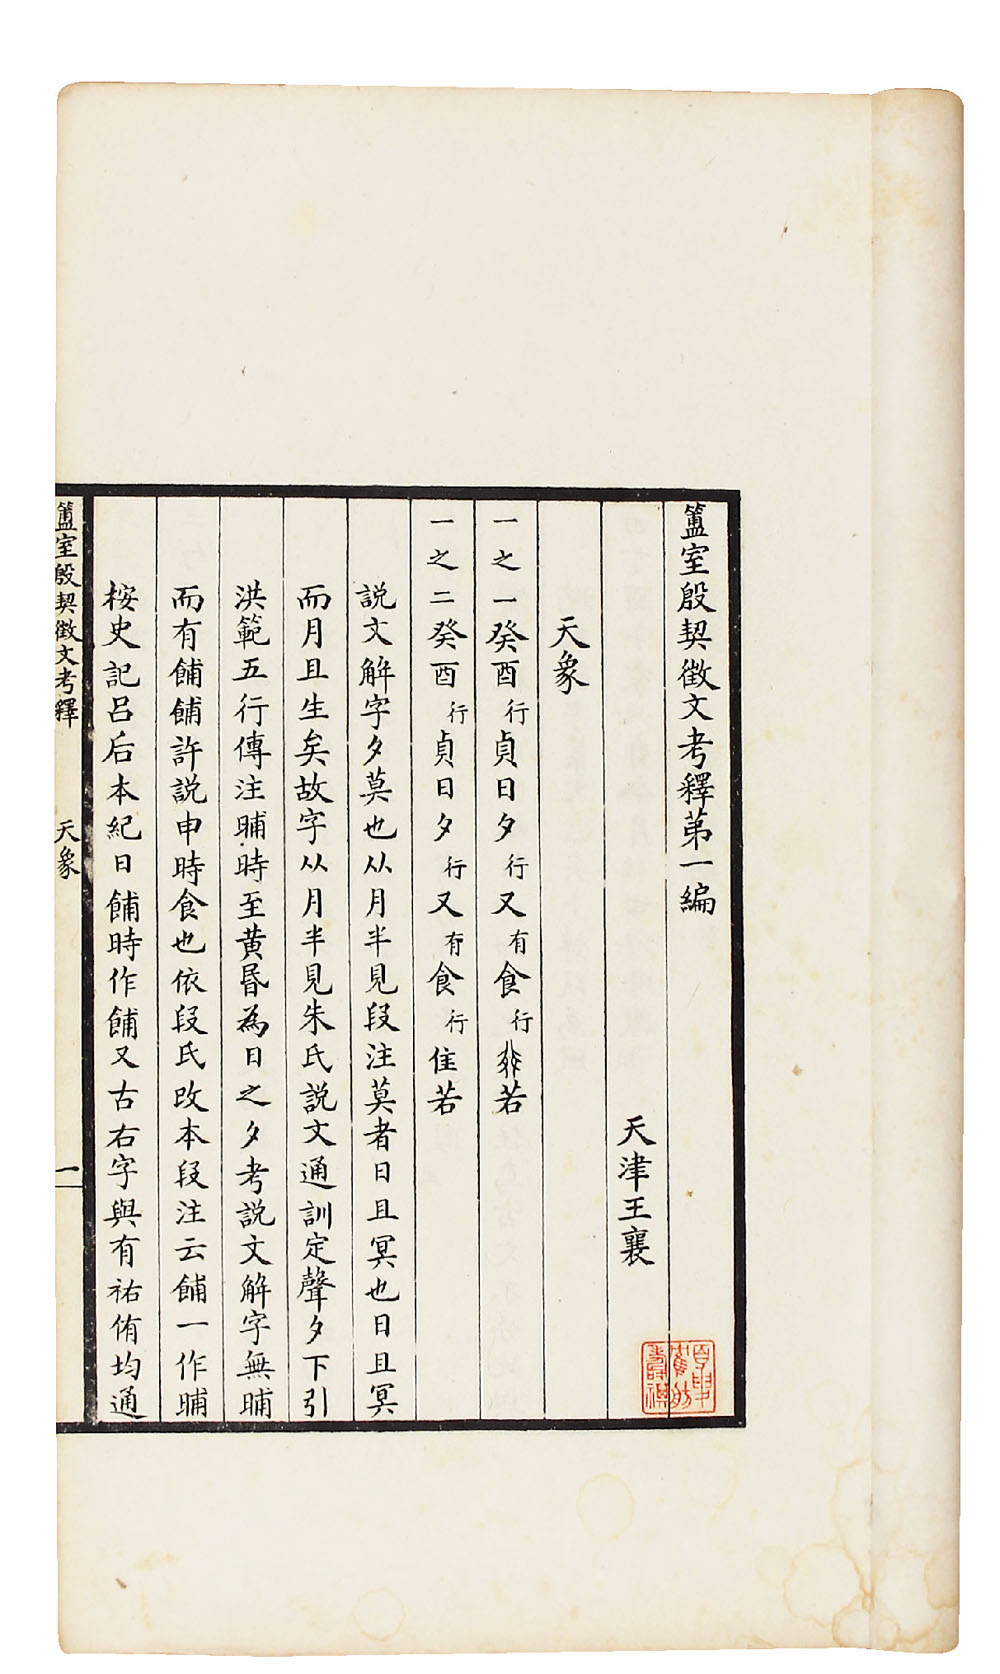 簠室殷契徵文考釋第一編
天津王襄
天象
一之一癸酉行貞日夕行又有食行非若
一之二癸酉行貞日夕行又有食行隹若
説文解字夕莫也从月半見段注莫者日且冥也日且冥
而月且生矣故字从月半見朱氏説文通訓定聲夕下引
洪範五行傳注晡時至黄昬為日之夕考説文解字無晡
而有餔餔許説申時食也依段氏改本段注云餔一作晡
桉史記吕后本紀日餔時作餔又古右字與有祐侑均通
簠室殷契徵文考釋
天象
一